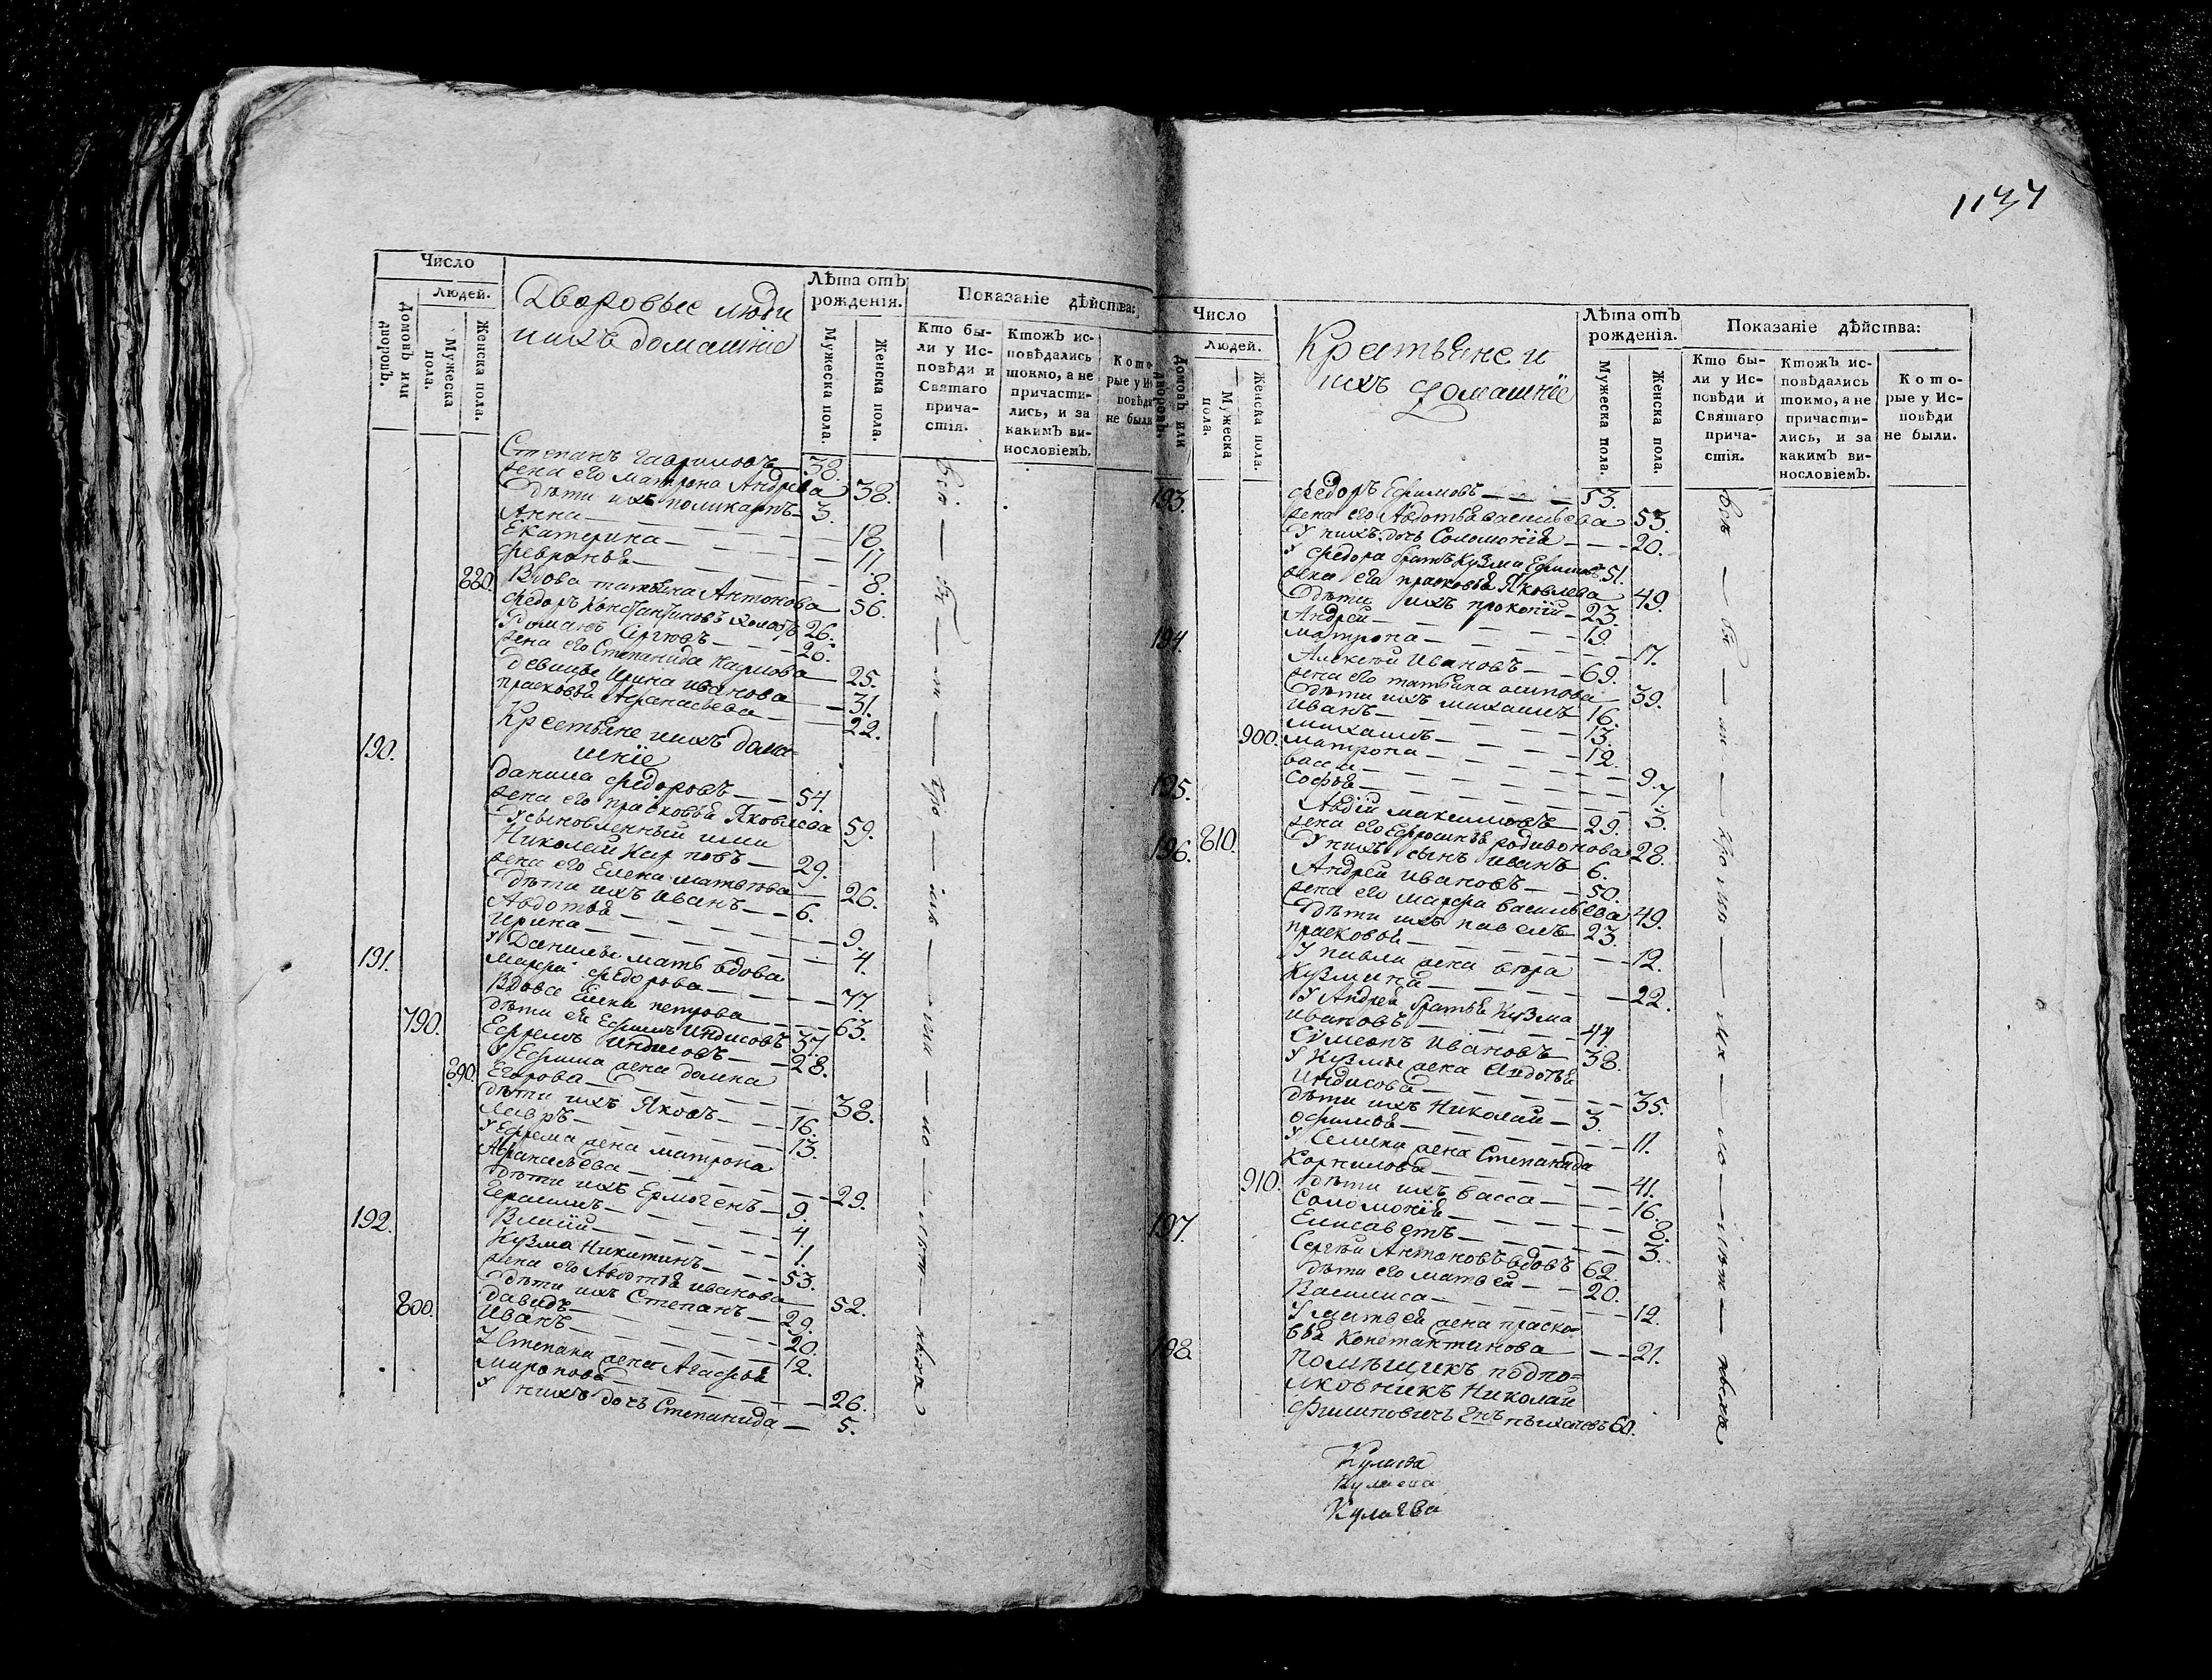 1137
Число
Людей.
Домовъ или дворовъ.
Мужеска пола.
Женска пола.
Дворовые люди
и ихъ домашніе
Лѣта отъ рожденія.
Мужеска пола.
Женска пола.
Показаніе дѣйства:
Кто бы-
ли у Ис-
повѣди и
Святаго
прича-
стія.
Ктожъ ис-
повѣдались
токмо, а не
причасти-
лись, и за
какимъ ви-
нословіемъ.
Кото-
рые у Ис-
повѣди
не были
Степанъ Гавриловъ 38.
жена его Матрона Андрева 38.
дѣти ихъ Поликарпъ 3.
Анна 18.
Екатерина 11.
Февронья 8.
880. Вдова татьяна Антонова 56.
Федоръ Константиновъ холостъ 26.
Романъ Сергѣевъ 26.
жена его Степанида Карпова 25.
девицы Ирина Иванова 31.
прасковья Афанасьева 22.
Крестьяне и ихъ дома-
шніе
190. Данила Федоровъ 54.
жена его прасковья Яковлева 59.
Усыновленный ими
Николай Карповъ 29.
жена его Елена матвѣева 26.
дѣти ихъ Иванъ 6.
Авдотья 9.
Ирина 4.
У Данилы мать вдова
Марфа Федорова 77.
191. Вдова Елена петрова 63.
дѣти ея Ефимъ Индисовъ 37.
790. Ефремъ Индисовъ 28.
У Ефима жена домна
890. Егорова 38.
дѣти ихъ Яковъ 16.
Лавръ 13.
У Ефрема жена матрона
Афанасьева 29.
дѣти ихъ Ермогенъ 9.
Герасимъ 4.
Власій 1.
192. Кузма Никитинъ 53.
жена его Авдотья иванова 52.
дѣти ихъ Степанъ 29.
800. давидъ 20.
Иванъ 12.
У Степана жена Агафья
миронова 26.
У нихъ дочь Степанида 5.
Число
Людей.
Домовъ или дворовъ.
Мужеска пола.
Женска пола.
Крестьяне и
ихъ домашніе
Лѣта отъ рожденія.
Мужеска пола.
Женска пола.
Показаніе дѣйства:
Кто бы-
ли у Ис-
повѣди и
Святаго
прича-
стія.
Ктожъ ис-
повѣдались
токмо, а не
причасти-
лись, и за
какимъ ви-
нословіемъ.
Кото-
рые у Ис-
повѣди
не были.
193. Федоръ Ефимовъ 53.
жена его Авдотья васильева 53.
У нихъ дочь Соломонія 20.
У Федора братъ Кузма Ефимовъ 51.
жена его прасковья Яковлева 49.
дѣти ихъ прокопій 23.
Андрей 19.
матрона 17.
194. Алексѣй Ивановъ 69.
жена его татьяна осипова 39.
дѣти ихъ михаилъ 16.
Иванъ 13.
михаилъ 12.
900. матрона 9.
васса 7.
Софья 3.
195. Авдій максимовъ 29.
жена его Ефросинья родивонова 28.
810. У нихъ сынъ иванъ 6.
196. Андрей Ивановъ 50.
жена его марфа васильева 49.
дѣти ихъ павелъ 23.
прасковья 12.
У павла жена
Кузмина 22.
У Андрея братья Кузма
ивановъ 44.
Сумеонъ Ивановъ 38.
У Кузмы жена Авдотья
Индисова 35.
дѣти ихъ Николай 3.
Офимья 11.
У Семиона жена Степанида
Корнилова 41.
910. дѣти ихъ васса 16.
Соломонія 8.
Елисаветъ 3.
197. Сергѣй Антоновъ вдовъ 62.
дѣти его матвѣй 20.
Василиса 12.
У матвѣя жена праско-
вья Констактинова 21.
198. Помѣщикъ подпо-
лковникъ Николай
Филиповичъ 60.
Кулаева
Кулаева
Кулаева